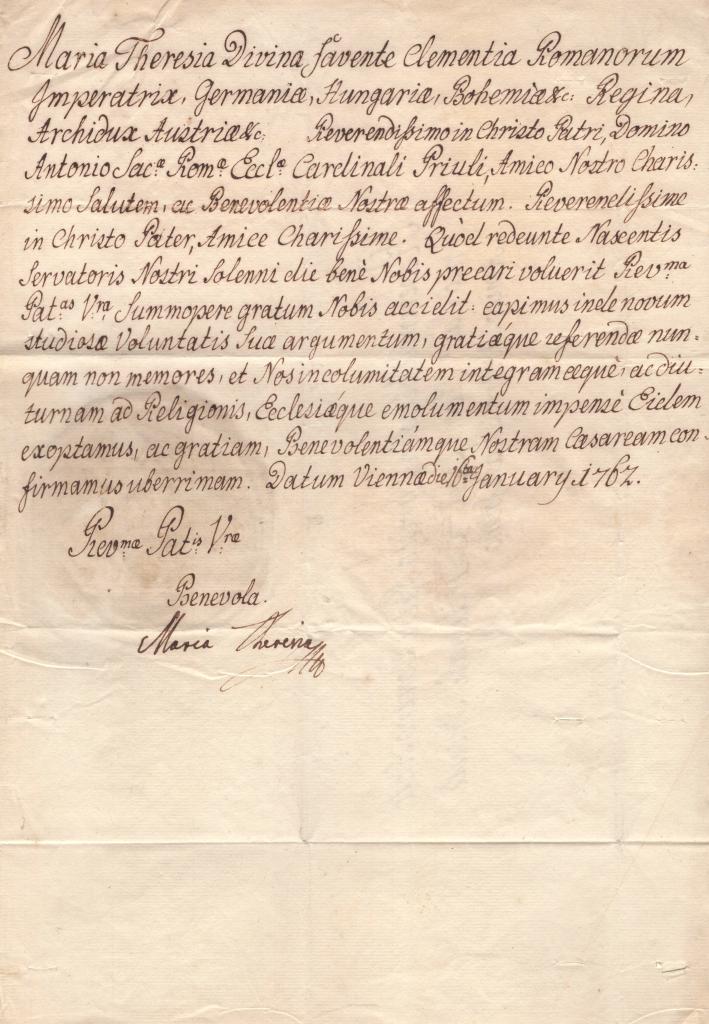 Maria Theresia Divina favente Clementia Romanorum
Imperatrix, Germaniæ, Hungariæ, Bohemiæ &c: Regina,
Archidux Austriæ &c: Reverendissimo in Christo Patri, Domino
Antonio Sac.æ Rom.æ Eccl.æ Cardinali Priuli, Amico Nostro Charis:
simo Salutem, ac Benevolentiæ Nostræ affectum. Reverendissime
in Christo Pater, Amice Charissime. Quòd redeunte Nascentis
Servatoris Nostri Solenni die benè Nobis precari voluerit Rev.ma
Pat.as V.ra Summopere gratum Nobis accidit: capimus inde novum
studiosæ Voluntatis Suæ argumentum, gratiæque referendæ nun:
quam non memores, et Nos incolumitatem integram æquè, ac diu:
turnam ad Religionis, Ecclesiæque emolumentum impensè Eidem
exoptamus, ac gratiam, Benevolentiámque Nostram Cæsaream con:
firmamus uberrimam. Datum Viennæ die 16.ta January 1762.
Rev.mæ Pat.is V.ræ
Benevola.
Maria Theresia